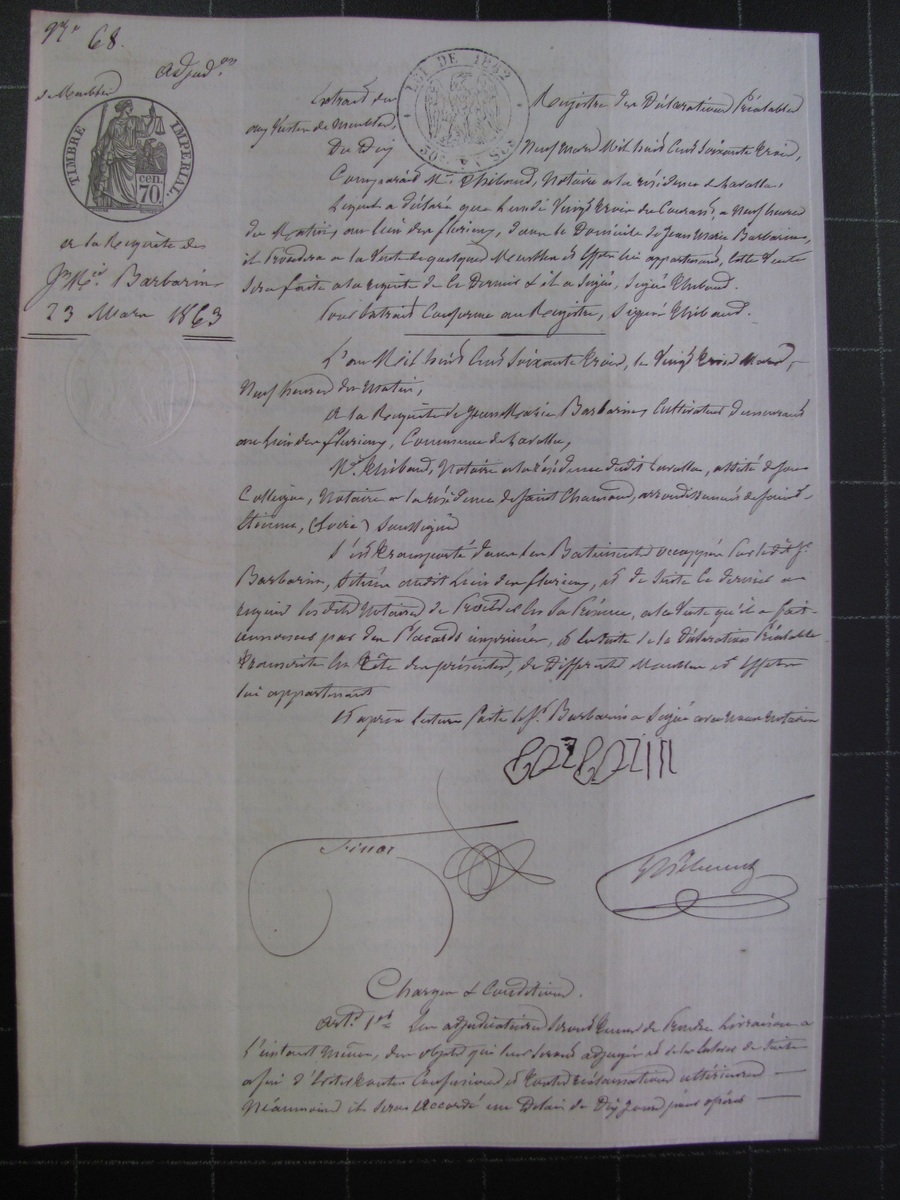 N° 68.
Adjud.on
de Meubles
TIMBRE IMPERIAL
cen. 70.
a la Requête de
Jn Mie Barbarin
23 Mars 1863
LOI DE 1862
Extrait du Registre des Déclarations Préalables
aux Ventes de Meubles,
Du Dix Neuf Mars Mil huit Cent Soixante trois,
Comparait Me Thibaud, Notaire a la résidence de Lavalla,
Lequel a déclaré que Lundi Vingt trois du Courant, a Neuf heures
du Matin, au lieu des fleurieux, dans le Domicile de Jean Marie Barbarin,
il Procèdera a la Vente de quelques Meubles et Effets lui appartenant, cette Vente
sera faite a la requête de Ce Dernier & il a Signé, Signé Thibaud.
Pour Extrait Conforme au Registre, Signé Thibaud.
L'an Mil huit Cent Soixante trois, le Vingt trois Mars,
Neuf heures du Matin,
A la Requête de Jean Marie Barbarin, Cultivateur demeurant
au Lieu des fleurieux, Commune de Lavalla,
Me Thibaud, Notaire a la résidence dudit Lavalla, assisté de son
Collègue, Notaire a la résidence de Saint Chamond, arrondissement de Saint
Etienne, (Loire) Soussignés
S'est transporté dans les Batiments occuppés par le dit Sr
Barbarin, Situés audit Lieu des fleurieux, et de Suite Ce dernier a
requis les dits Notaires de Procéder En Sa Présence, a la Vente qu'il a fait
annoncer par des Placards imprimés, & la suite de la Déclaration Préalable
transcrite En Tête des présentes, de Différents Meubles et Effets
lui appartenant
Et après lecture faite le Sr Barbarin a Signé avec Nous Notaires
barbarin
Finas
Thibaud
Charges & Conditions.
Art. 1er Les adjudicataires seront tenus de Prendre Livraison a
l'instant même, des objets qui leur seront adjugés et de les Enlever de Suite
afin d'Eviter toutes Confusions et toutes réclamations ultérieures
Néanmoins il sera accordé un Délai de Dix jours pour opérer